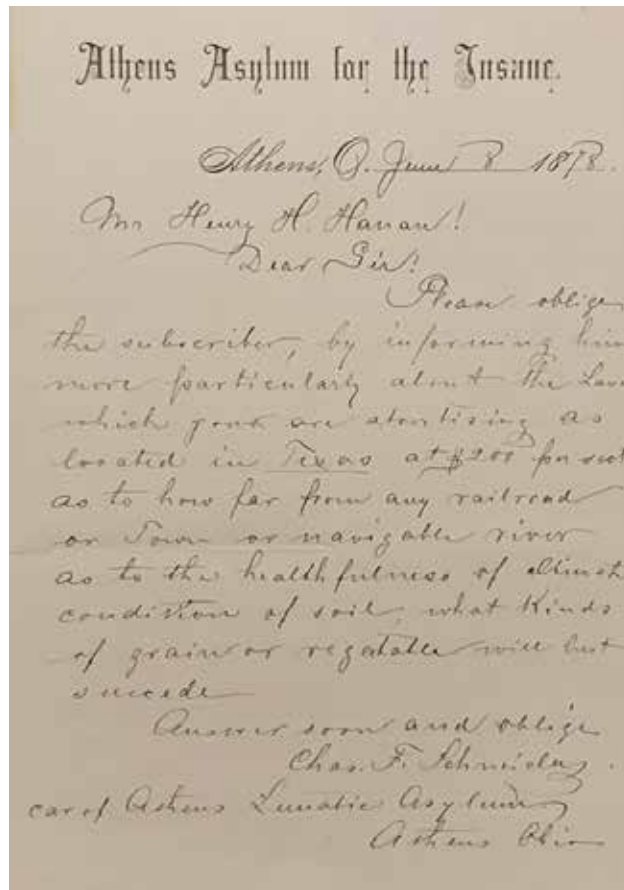 Athens Asylum for the Insane.
Athens, O. June 8 1878.
Mr Henry H. Hanan!
Dear Sir!
Please oblige
the subscriber, by informing him
more particularly about the
which your are
located in Texas at $200 per
as to how far from any railroad
or Town or navigable river
as to the healthfulness of
condition of soil, what Kinds
of grain or regatable will best
succede
Answer soon and oblige
Chas. F. Schneider.
car of Athens Lunatic Asylum
Athens Ohio